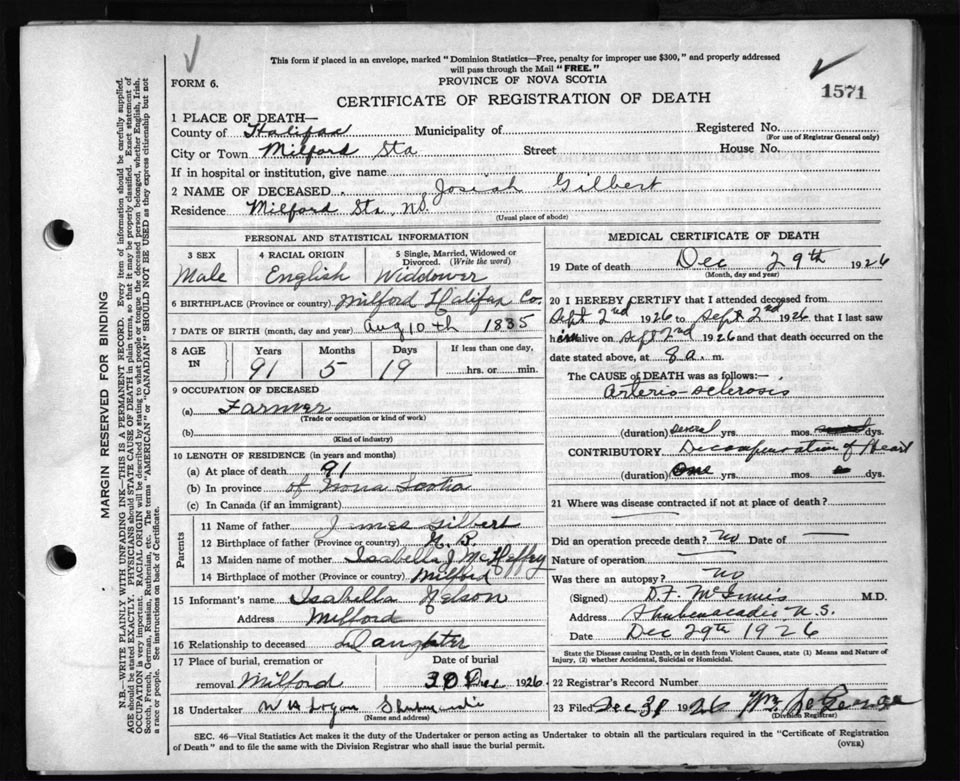 This form if placed in an envelope, marked "Dominion Statistics—Free, penalty for improper use $300," and properly addressed
will pass through the Mail "FREE."
FORM 6.
PROVINCE OF NOVA SCOTIA
CERTIFICATE OF REGISTRATION OF DEATH
1571
1 PLACE OF DEATH—
County of Halifax Municipality of Registered No.
(For use of Registrar General only)
City or Town Milford Sta Street House No.
If in hospital or institution, give name
2 NAME OF DECEASED Josiah Gilbert
Residence Milford Sta,
(Usual place of abode)
PERSONAL AND STATISTICAL INFORMATION
3 SEX
Male
4 RACIAL ORIGIN
English
5 Single, Married, Widowed or
Divorced. (Write the word)
Widdower
6 BIRTHPLACE (Province or country) Milford Halifax Co.
7 DATE OF BIRTH (month, day and year) Aug 10th 1835
8 AGE IN
Years Months Days If less than one day,
91 5 19 hrs. or min.
9 OCCUPATION OF DECEASED
(a) Farmer
(Trade or occupation or kind of work)
(b)
(Kind of industry)
10 LENGTH OF RESIDENCE (in years and months)
(a) At place of death 91
(b) In province of Nova Scotia
(c) In Canada (if an immigrant)
Parents
11 Name of father James Gilbert
12 Birthplace of father (Province or country) N.B.
13 Maiden name of mother Isabella J
14 Birthplace of mother (Province or country) Milford
15 Informant's name Isabella Nelson
Address Milford
16 Relationship to deceased Daughter
17 Place of burial, cremation or Date of burial
removal Milford 30 Dec 1926
18 Undertaker W H Logan
(Name and address)
MEDICAL CERTIFICATE OF DEATH
19 Date of death Dec 29th 1926
(Month, day and year)
20 I HEREBY CERTIFY that I attended deceased from
Sept 2nd 1926 to Sept 2nd 1926 that I last saw
him alive on Sept 2nd 1926 and that death occurred on the
date stated above, at 8 a. m.
The CAUSE of DEATH was as follows:—
Arterio-sclerosis
(duration) several yrs. mos. dys.
CONTRIBUTORY Decompensation of Heart
(duration) one yrs. mos. dys.
21 Where was disease contracted if not at place of death?
Did an operation precede death? no Date of
Nature of operation
Was there an autopsy? no
(Signed) D.F. McInnis M.D.
Address Shubenacadie N.S.
Date Dec 29th 1926
State the Disease causing Death, or in death from Violent Causes, state (1) Means and Nature of
Injury, (2) whether Accidental, Suicidal or Homicidal.
22 Registrar's Record Number
23 Filed Dec 31 1926 Wm
(Division Registrar)
SEC. 46—Vital Statistics Act makes it the duty of the Undertaker or person acting as Undertaker to obtain all the particulars required in the "Certificate of Registration
of Death" and to file the same with the Division Registrar who shall issue the burial permit.
(OVER)
MARGIN RESERVED FOR BINDING
N.B.—WRITE PLAINLY WITH UNFADING INK—THIS IS A PERMANENT RECORD. Every item of information should be carefully supplied.
AGE should be stated EXACTLY. PHYSICIANS should state CAUSE OF DEATH in plain terms, so that it may be properly classified. Exact statement of
OCCUPATION is very important. RACIAL ORIGIN will be described by stating to what people or tongue the deceased person belonged, whether English, Irish,
Scotch, French, German, Russian, Ruthenian, etc. The terms "AMERICAN" or "CANADIAN" SHOULD NOT BE USED as they express citizenship but not
a race or people. See instructions on back of Certificate.